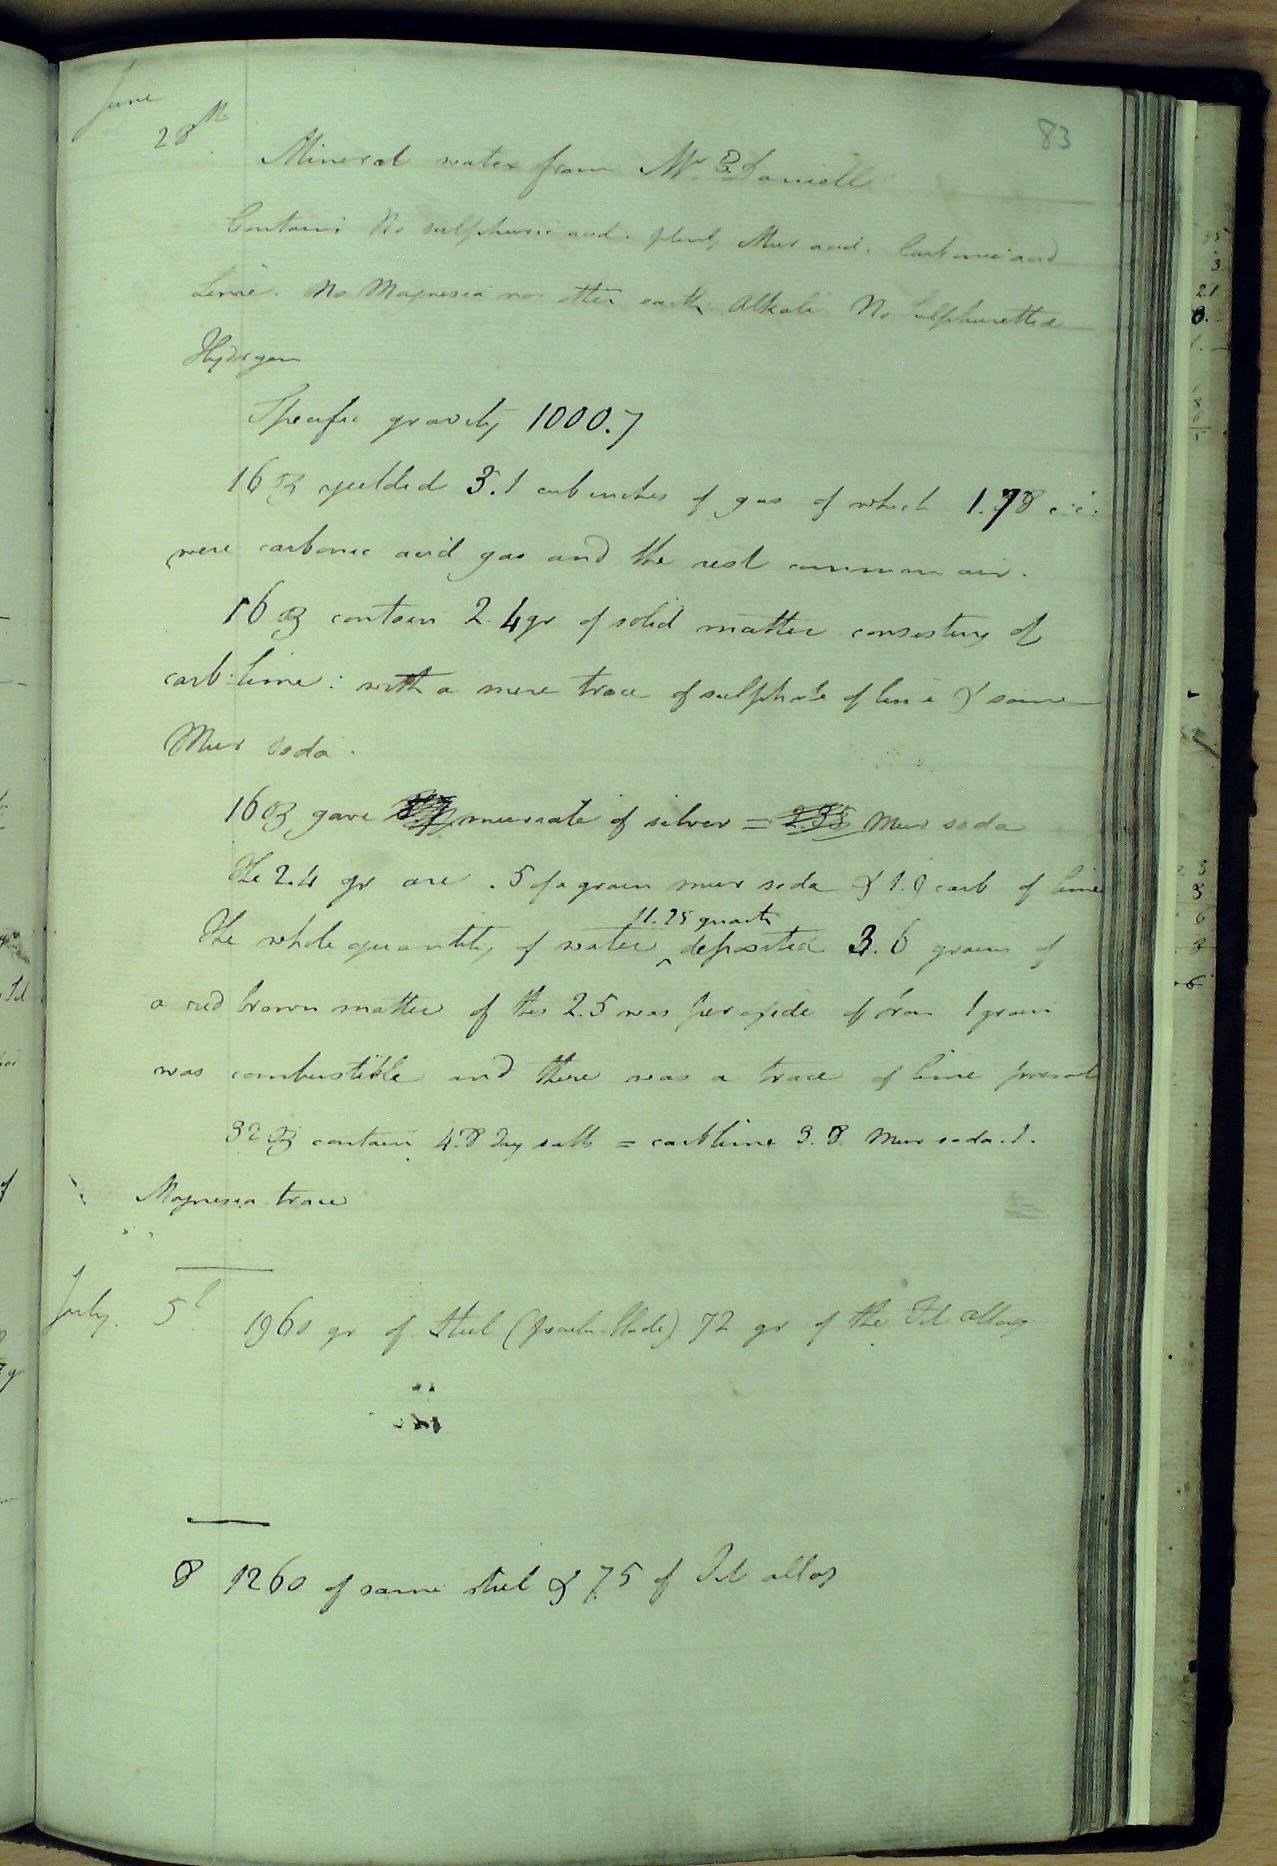 June
28th
83
Mineral water from Mr. E Daniell
Contains No sulphuric acid. plenty Mur acid. Carbonic acid
Lime. No Magnesia nor other earth Alkali No Sulphuretted
Hydrogen
Specific gravity 1000.7
16 oz yielded 3.1 cub inches of gas of which 1.78 c:i:
were carbonic acid gas and the rest common air.
16 oz contain 2.4 gr of solid matter consisting of
carb: lime: with a mere trace of sulphate of lime & some
Mur soda.
16 oz gave muriate of silver = Mur soda
The 2.4 gr are .5 of a grain mur soda & 1.9 carb of lime
11.25 quarts
The whole quantity of water ^ deposited 3.6 grains of
a red brown matter of this 2.5 was peroxide of iron 1 grain
was combustible and there was a trace of lime present
32 oz contain 4.8 dry salts = carb lime 3.8. Mur soda. 1.
Magnesia trace
July. 5t 1960 gr of Steel 72 gr of the alloy
8 1260 of same steel & 75 of alloy